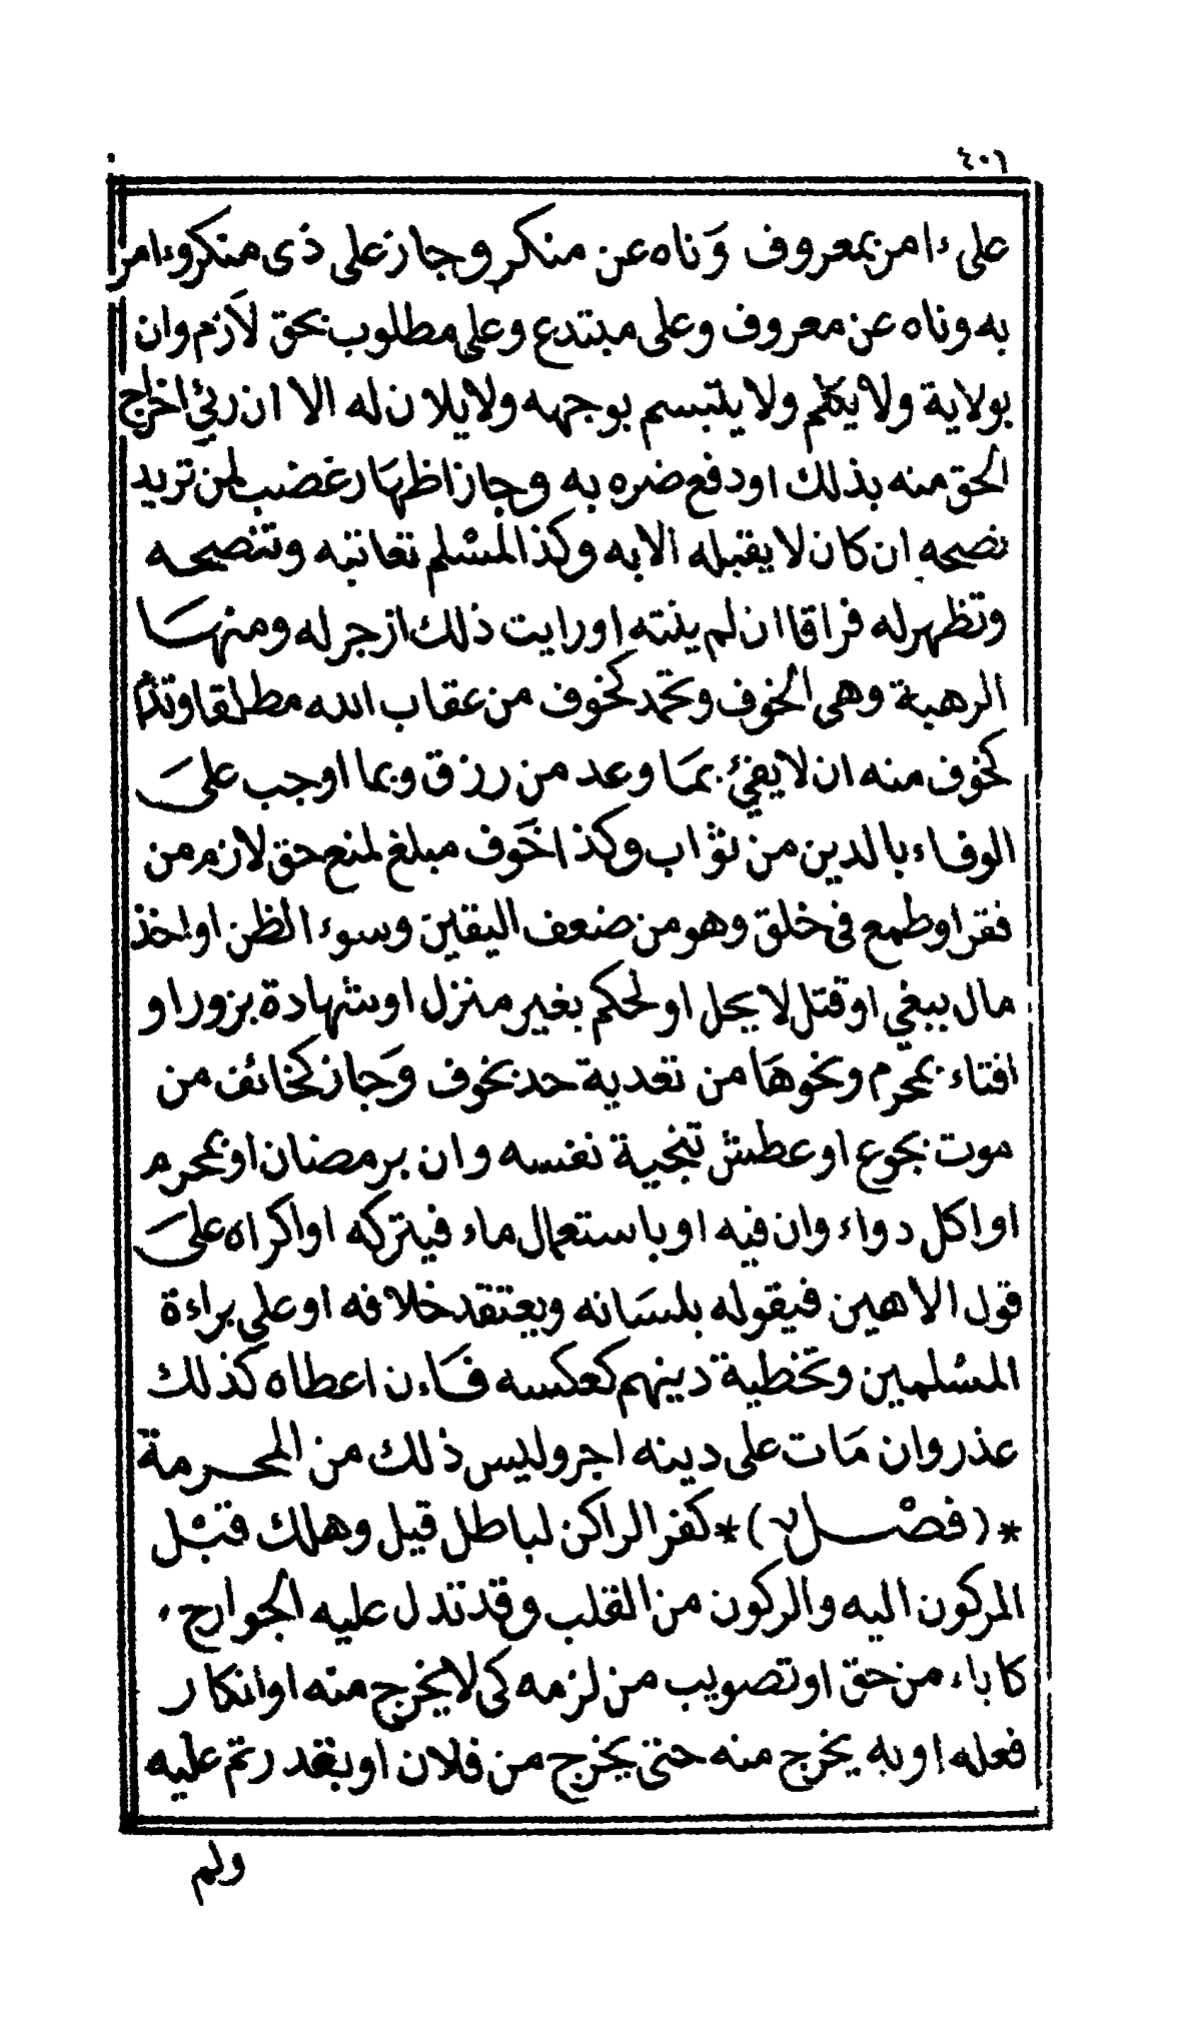 ٤٠٦
على ءامن بمعروف وناه عن منكر وجاز على ذى منكر وءامر
به وناه عن معروف وعلى مبتدع وعلى مطلوب بحق لازم وان
بولاية ولا يكلم ولا يتبسم بوجهه ولا يلان له الا ان رئي اخراج
الحق منه بذلك او دفع ضره به وجاز اظهار غضب لمن تريد
نصحه ان كان لا يقبله الا به وكذا المسلم تعاتبه وتنصحه
وتظهر له فراقا ان لم ينته او رايت ذلك ازجر له ومنها
الرهبة وهى الخوف وتحمد كخوف من عقاب الله مطلقا وتذم
كخوف منه ان لا يفئ بما وعد من رزق وبما اوجب على
الوفاء بالدين من ثواب وكذا خوف مبلغ لمنع حق لازم من
فقر او طمع فى خلق وهو من ضعف اليقين وسوء الظن او اخذ
مال ببغي او قتل لا يحل او لحكم بغير منزل او شهادة بزور او
افتاء بمحرم ونحوها من تعدية حد بخوف وجاز كخائف من
موت بجوع او عطش تنجية نفسه وان برمضان او بمحرم
او اكل دواء وان فيه او باستعمال ماء فيتركه او اكراه على
قول الاهين فيقوله بلسانه ويعتقد خلافه او على براءة
المسلمين وتخطية دينهم كعكسه فاءن اعطاه كذلك
عذر وان مات على دينه اجر وليس ذلك من المحرمة
*(فصل ٧)* كفر الراكن لباطل قيل وهلك قبل
المركون اليه والركون من القلب وقد تدل عليه الجوارح
كاباء من حق او تصويب من لزمه كى لا يخرج منه او انكار
فعله او به يخرج منه حتى يخرج من فلان او بقدر تم عليه
ولم